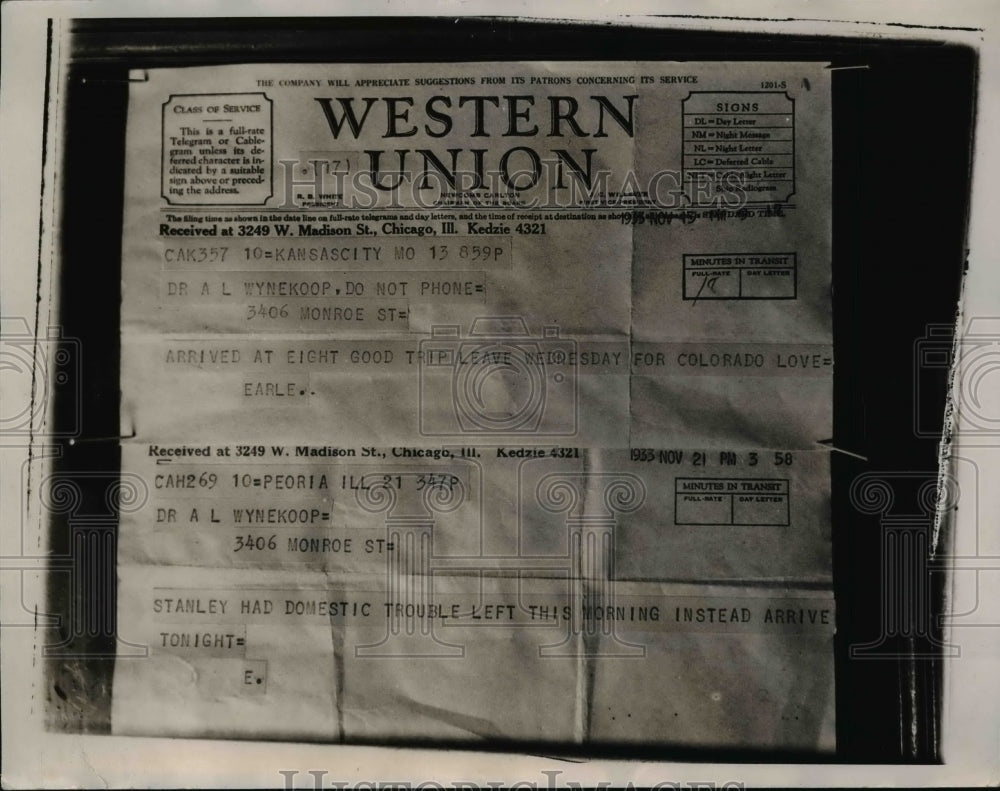 THE COMPANY WILL APPRECIATE SUGGESTIONS FROM ITS PATRONS CONCERNING ITS SERVICE
1201-S
CLASS OF SERVICE
This is a full-rate
Telegram or Cable-
gram unless its de-
ferred character is in-
dicated by a suitable
sign above or preced-
ing the address.
WESTERN
UNION
(17)
R. B. WHITE
PRESIDENT
NEWCOMB CARLTON
CHAIRMAN OF THE BOARD
J. C. WILLEVER
FIRST VICE-PRESIDENT
SIGNS
DL = Day Letter
NM = Night Message
NL = Night Letter
LC = Deferred Cable
NLT = Cable Night Letter
Ship Radiogram
HISTORIC IMAGES
The filing time as shown in the date line on full-rate telegrams and day letters, and the time of receipt at destination as shown STANDARD TIME.
Received at 3249 W. Madison St., Chicago, Ill. Kedzie 4321
1933 NOV 13 PM 9 18
CAK357 10=KANSASCITY MO 13 859P
MINUTES IN TRANSIT
FULL-RATE DAY LETTER
DR A L WYNEKOOP,DO NOT PHONE=
3406 MONROE ST=
ARRIVED AT EIGHT GOOD TRIP LEAVE WEDNESDAY FOR COLORADO LOVE=
EARLE..
Received at 3249 W. Madison St., Chicago, Ill. Kedzie 4321
1933 NOV 21 PM 3 58
CAH269 10=PEORIA ILL 21 347P
MINUTES IN TRANSIT
FULL-RATE DAY LETTER
DR A L WYNEKOOP=
3406 MONROE ST=
STANLEY HAD DOMESTIC TROUBLE LEFT THIS MORNING INSTEAD ARRIVE
TONIGHT=
E.
HISTORIC IMAGES